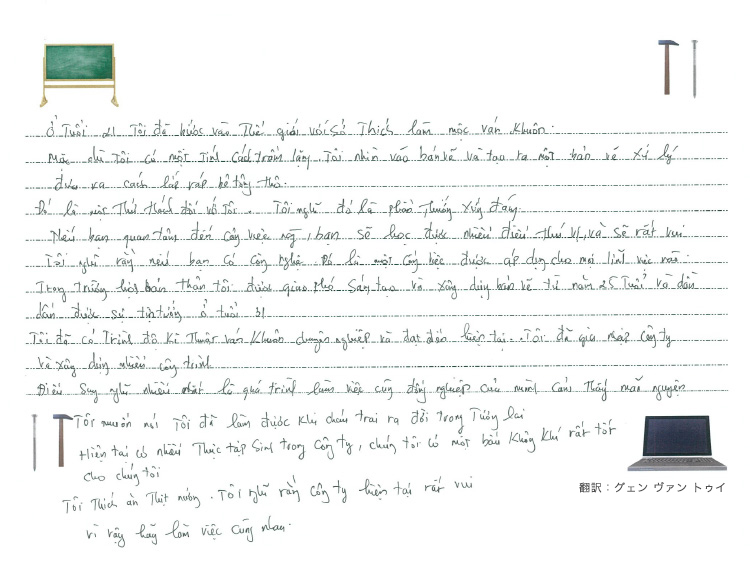 Ở Tuổi 21 Tôi đã bước vào Thế giới với Sở Thích làm mộc ván khuôn.
Mặc dù Tôi có một Tính cách trầm lặng. Tôi nhìn vào bản vẽ và tạo ra một bản vẽ xử lý
đưa ra cách lắp ráp bê tông thô.
Đó là một Thử thách đối với Tôi. Tôi nghĩ đó là phần Thưởng xứng đáng.
Nếu bạn quan tâm đến công việc này, bạn sẽ học được nhiều điều thú vị, và sẽ rất vui
Tôi nghĩ rằng nếu bạn có công nghệ. Đó là một công việc được áp dụng cho mọi lĩnh vực nào.
Trong trường hợp bản thân tôi được giao phó sáng tạo và xây dựng bản vẽ từ năm 25 Tuổi và dần
dần được sự tin tưởng ở tuổi 31
Tôi đã có Trình độ kĩ Thuật ván khuôn chuyên nghiệp và đạt đến hiện tại. Tôi đã gia nhập công ty
và xây dựng nhiều công trình
Điều suy nghĩ nhiều nhất là quá trình làm việc cùng đồng nghiệp của mình cảm Thấy mãn nguyện
Tôi muốn nói Tôi đã làm được khi cháu trai ra đời trong Tương lai
Hiện tại có nhiều Thực tập sinh trong công ty, chúng tôi có một bầu không khí rất tốt
cho chúng tôi
Tôi Thích ăn Thịt nướng. Tôi nghĩ rằng công ty hiện tại rất vui
vì vậy hãy làm việc cùng nhau.
翻訳：グェン ヴァン トゥイ